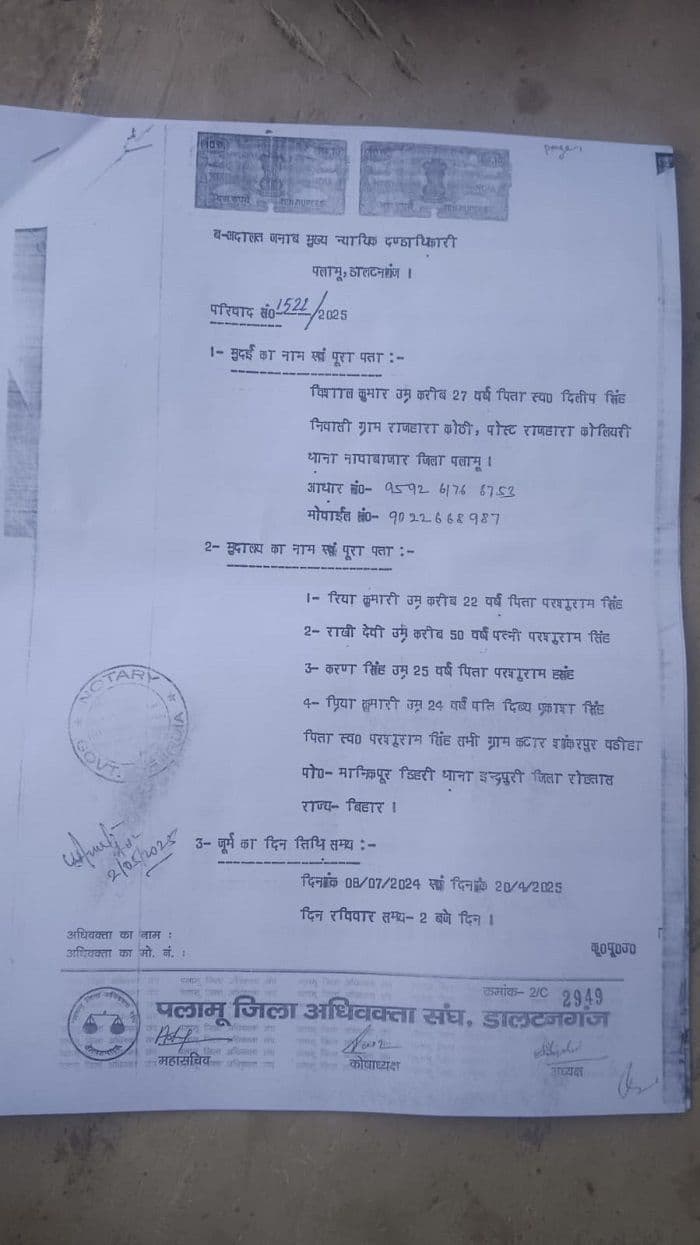 page-1
ब-अदालत जनाब मुख्य न्यायिक दण्डाधिकारी
पलामू, डालटनगंज ।
परिवाद सं0 1522/2025
1- मुदई का नाम एवं पूरा पता :-
विशाल कुमार उम्र करीब 27 वर्ष पिता स्व0 दिलीप सिंह
निवासी ग्राम राजहारा कोठी, पोस्ट राजहारा कोलियरी
थाना नावाबाजार जिला पलामू ।
आधार नं0- 9592 6176 6753
मोबाईल नं0- 9022668987
2- मुदालय का नाम एवं पूरा पता :-
1- रिया कुमारी उम्र करीब 22 वर्ष पिता परशुराम सिंह
2- राखी देवी उम्र करीब 50 वर्ष पत्नी परशुराम सिंह
3- करण सिंह उम्र 25 वर्ष पिता परशुराम
4- प्रिया कुमारी उम्र 24 वर्ष पति दिव्य प्रकाश सिंह
पिता स्व0 परशुराम सिंह सभी ग्राम कटार शंकरपुर
पो0- मानिकपूर डिहरी थाना इन्द्रपुरी जिला रोहतास
राज्य- बिहार ।
NOTARY
GOVT.
2/05/2025
3- जूर्म का दिन तिथि समय :-
दिनांक 08/07/2024 एवं दिनांक 20/4/2025
दिन रविवार समय- 2 बजे दिन ।
अधिवक्ता का नाम :
अधिवक्ता का मो. नं. :
कृ0पृ0उ0
क्रमांक- 2/C 2949
पलामू जिला अधिवक्ता संघ, डालटनगंज
महासचिव कोषाध्यक्ष अध्यक्ष